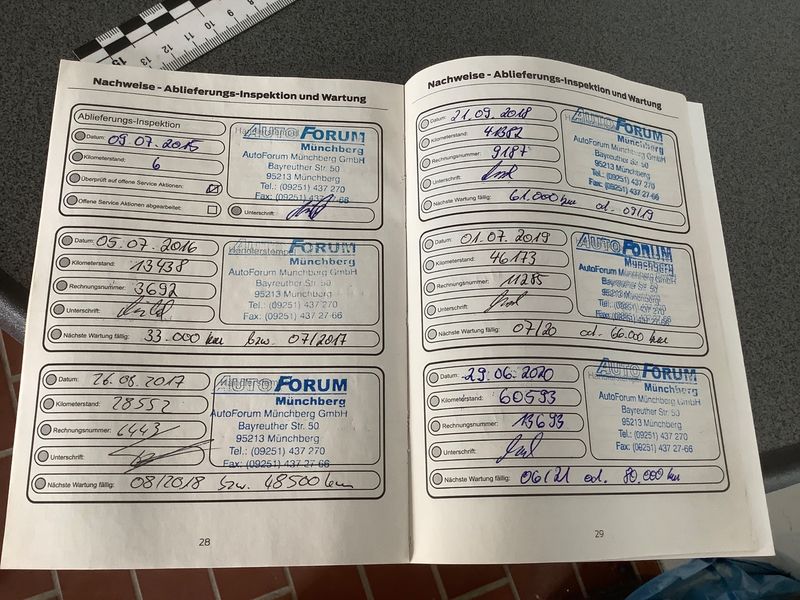 15 13 12 11 10 9 8
Nachweise - Ablieferungs-Inspektion und Wartung
Ablieferungs-Inspektion
Datum: 09.07.2015
Kilometerstand: 6
Überprüft auf offene Service Aktionen:
Offene Service Aktionen abgearbeitet:
Unterschrift:
AUTOFORUM
Münchberg
AutoForum Münchberg GmbH
Bayreuther Str. 50
95213 Münchberg
Tel.: (09251) 437 270
Fax: (09251) 437 27-66
Datum: 05.07.2016
Kilometerstand: 13438
Rechnungsnummer: 3692
Unterschrift:
Händlerstempel
AUTOFORUM
Münchberg
AutoForum Münchberg GmbH
Bayreuther Str. 50
95213 Münchberg
Tel.: (09251) 437 270
Fax: (09251) 437 27-66
Nächste Wartung fällig: 33.000 km bzw. 07/2017
Datum: 26.08.2017
Kilometerstand: 28552
Rechnungsnummer: 6443
Unterschrift:
AUTOFORUM
Münchberg
AutoForum Münchberg GmbH
Bayreuther Str. 50
95213 Münchberg
Tel.: (09251) 437 270
Fax: (09251) 437 27-66
Nächste Wartung fällig: 08/2018 bzw. 48500 km
28
Nachweise - Ablieferungs-Inspektion und Wartung
Datum: 21.09.2018
Kilometerstand: 41382
Rechnungsnummer: 9187
Unterschrift:
AUTOFORUM
Münchberg
AutoForum Münchberg GmbH
Bayreuther Str. 50
95213 Münchberg
Tel.: (09251) 437 270
Fax: (09251) 437 27-66
Nächste Wartung fällig: 61.000 km od. 09/19
Datum: 01.07.2019
Kilometerstand: 46173
Rechnungsnummer: 11285
Unterschrift:
AUTOFORUM
Münchberg
AutoForum Münchberg GmbH
Bayreuther Str. 50
95213 Münchberg
Tel.: (09251) 437 270
Fax: (09251) 437 27-66
Nächste Wartung fällig: 07/20 od. 66.000 km
Datum: 29.06.2020
Kilometerstand: 60593
Rechnungsnummer: 13693
Unterschrift:
AUTOFORUM
Münchberg
AutoForum Münchberg GmbH
Bayreuther Str. 50
95213 Münchberg
Tel.: (09251) 437 270
Fax: (09251) 437 27-66
Nächste Wartung fällig: 06/21 od. 80.000 km
29